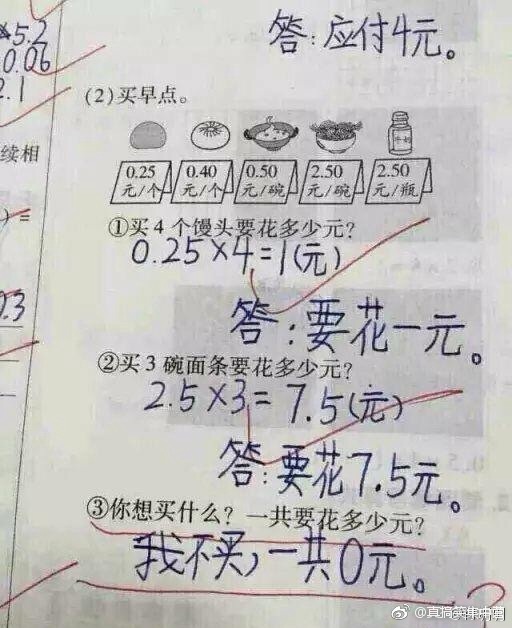 ×5.2
0.06
2.1
答:应付4元。
(2)买早点。
续相
0.25 0.40 0.50 2.50 2.50
元/个 元/个 元/碗 元/碗 元/瓶
①买4个馒头要花多少元?
0.25×4=1(元)
0.3
答:要花一元。
②买3碗面条要花多少元?
2.5×3=7.5(元)
答:要花7.5元。
③你想买什么?一共要花多少元?
我不买,一共0元。
@直搞笑集中营